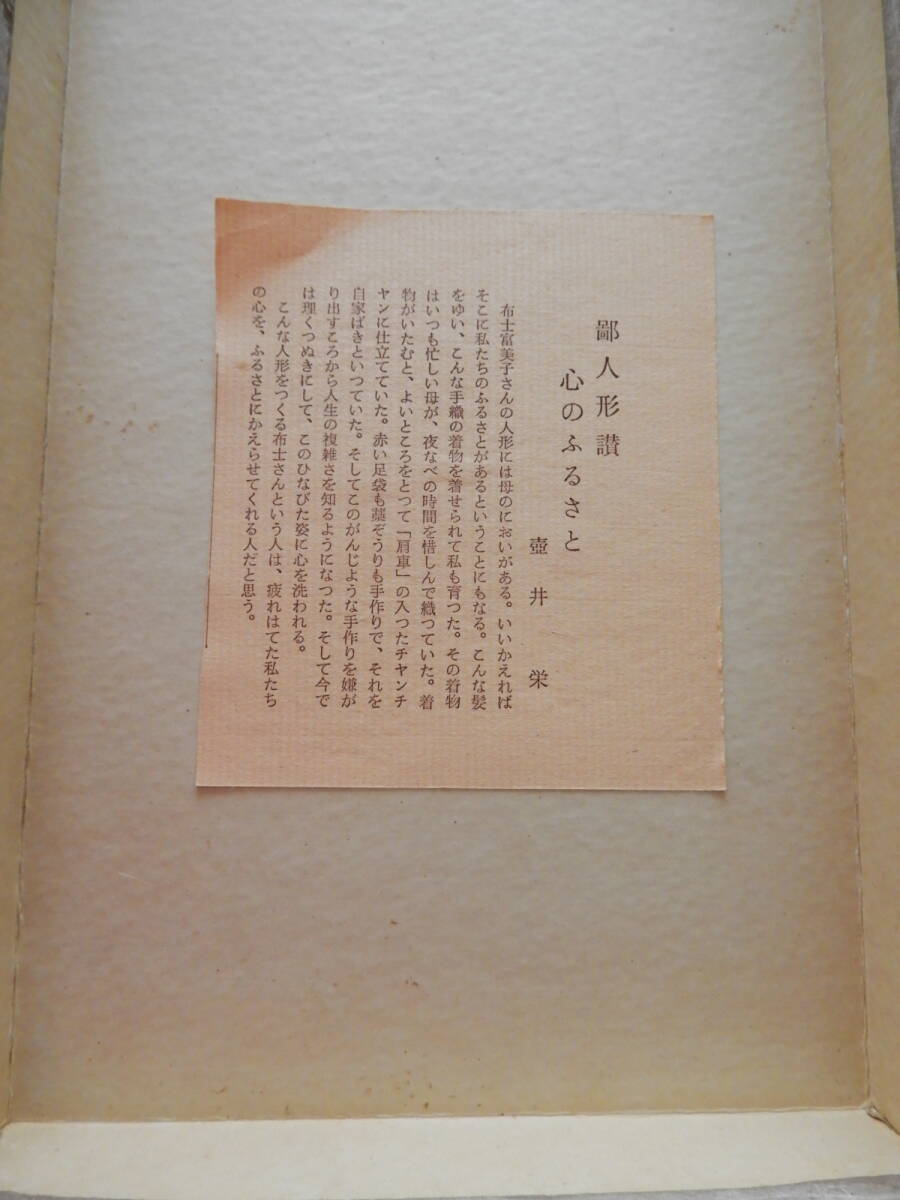 鄙人形讃
心のふるさと
壺井栄
布士富美子さんの人形には母のにおいがある。いいかえれば
そこに私たちのふるさとがあるということにもなる。こんな髪
をゆい、こんな手織の着物を着せられて私も育つた。その着物
はいつも忙しい母が、夜なべの時間を惜しんで織つていた。着
物がいたむと、よいところをとつて「肩車」の入つたチヤンチ
ヤンに仕立てていた。赤い足袋も藁ぞうりも手作りで、それを
自家ばきといつていた。そしてこのがんじような手作りを嫌が
り出すころから人生の複雑さを知るようになつた。そして今で
は理くつぬきにして、このひなびた姿に心を洗われる。
こんな人形をつくる布士さんという人は、疲れはてた私たち
の心を、ふるさとにかえらせてくれる人だと思う。